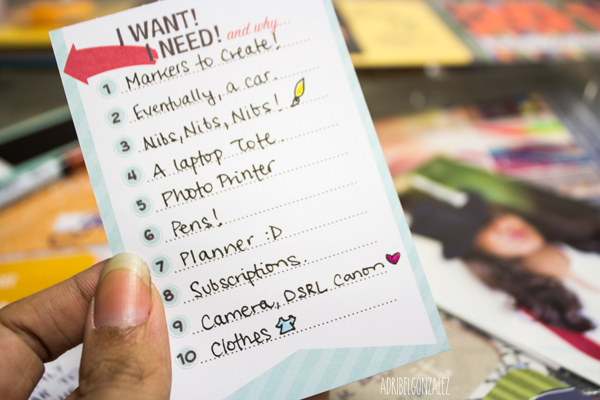 I WANT!
I NEED! and why...
1 Markers to create!
2 Eventually, a car.
3 Nibs, Nibs, Nibs!
4 A laptop Tote
5 Photo Printer
6 Pens!
7 Planner :D
8 Subscriptions.
9 Camera, DSRL Canon
10 Clothes
ADRIBELGONZALEZ